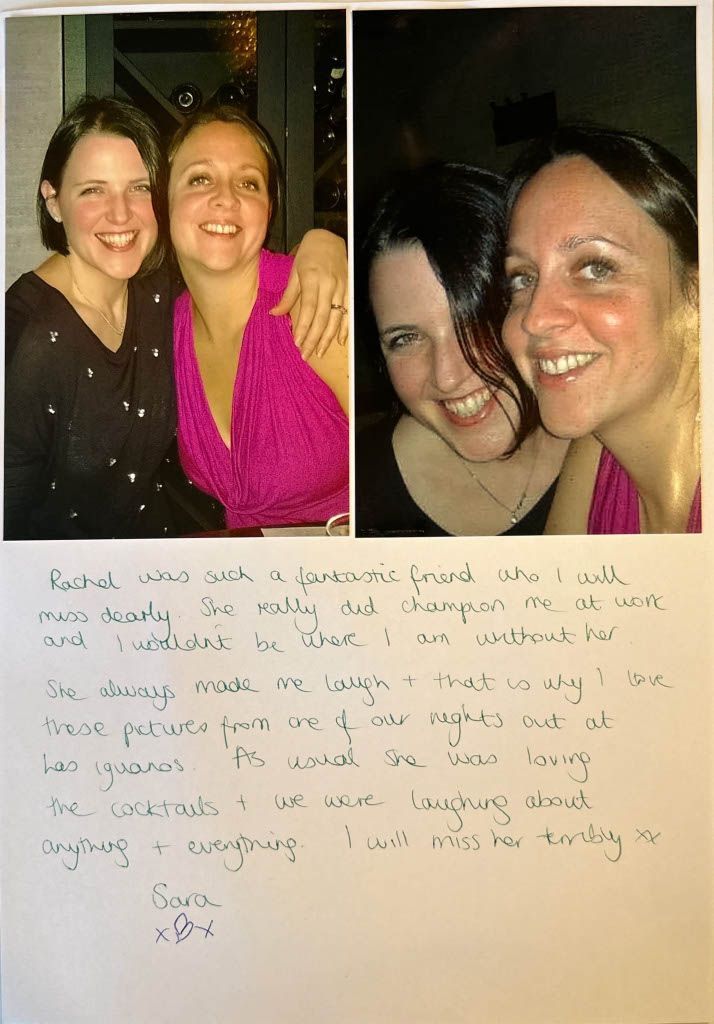 Rachel was such a fantastic friend who I will
miss dearly. She really did champion me at work
and I wouldn't be where I am without her.
She always made me laugh + that is why I love
these pictures from one of our nights out at
Las iguanas. As usual she was loving
the cocktails + we were laughing about
anything + everything. I will miss her terribly xx
Sara
x x